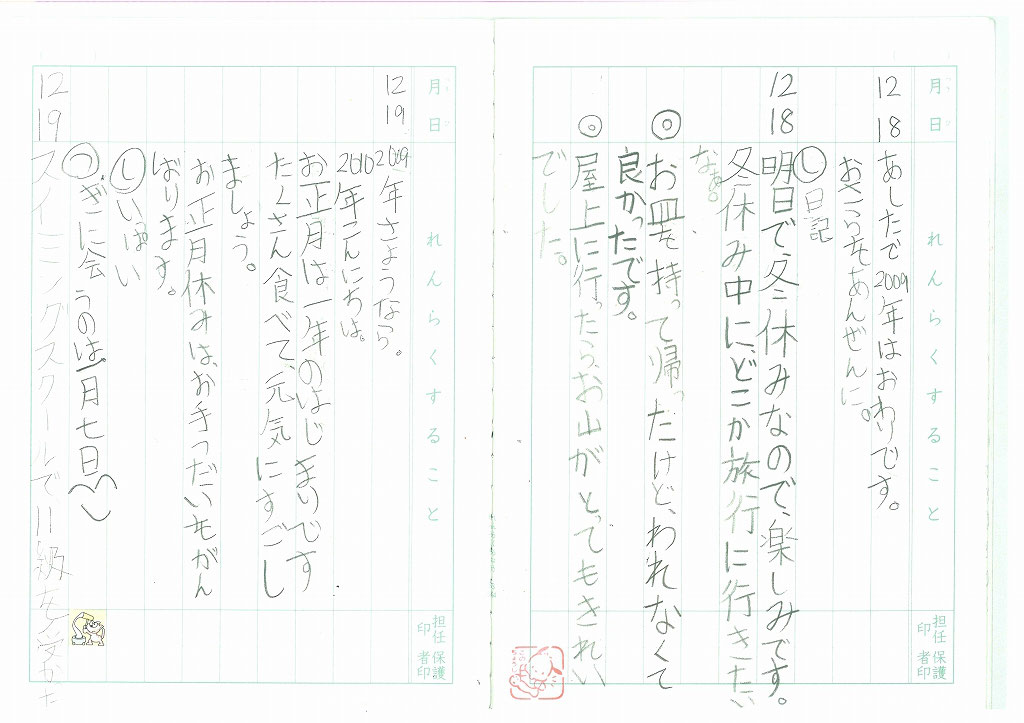 月日 れんらくすること 担任印 保護者印
12 18 あしたで2009年はおわりです。
おさらをあんぜんに。
し 日記
12 18 明日で冬休みなので、楽しみです。
冬休み中に、どこか旅行に行きたい
なぁ。
◎お皿も持って帰っだけど、われなくて
良かったです。
◎屋上に行ったら、お山がとってもきれい
でした。
月日 れんらくすること 担任印 保護者印
12 19 2009年さようなら。
2010年こんにちは。
お正月は一年のはじまりです
たくさん食べて、元気にすごし
ましょう。
お正月休みは、お手つだいもがん
ばります。
し
つぎに会うのは、一月七日
12 19 スイミングスクールで11級を受かった